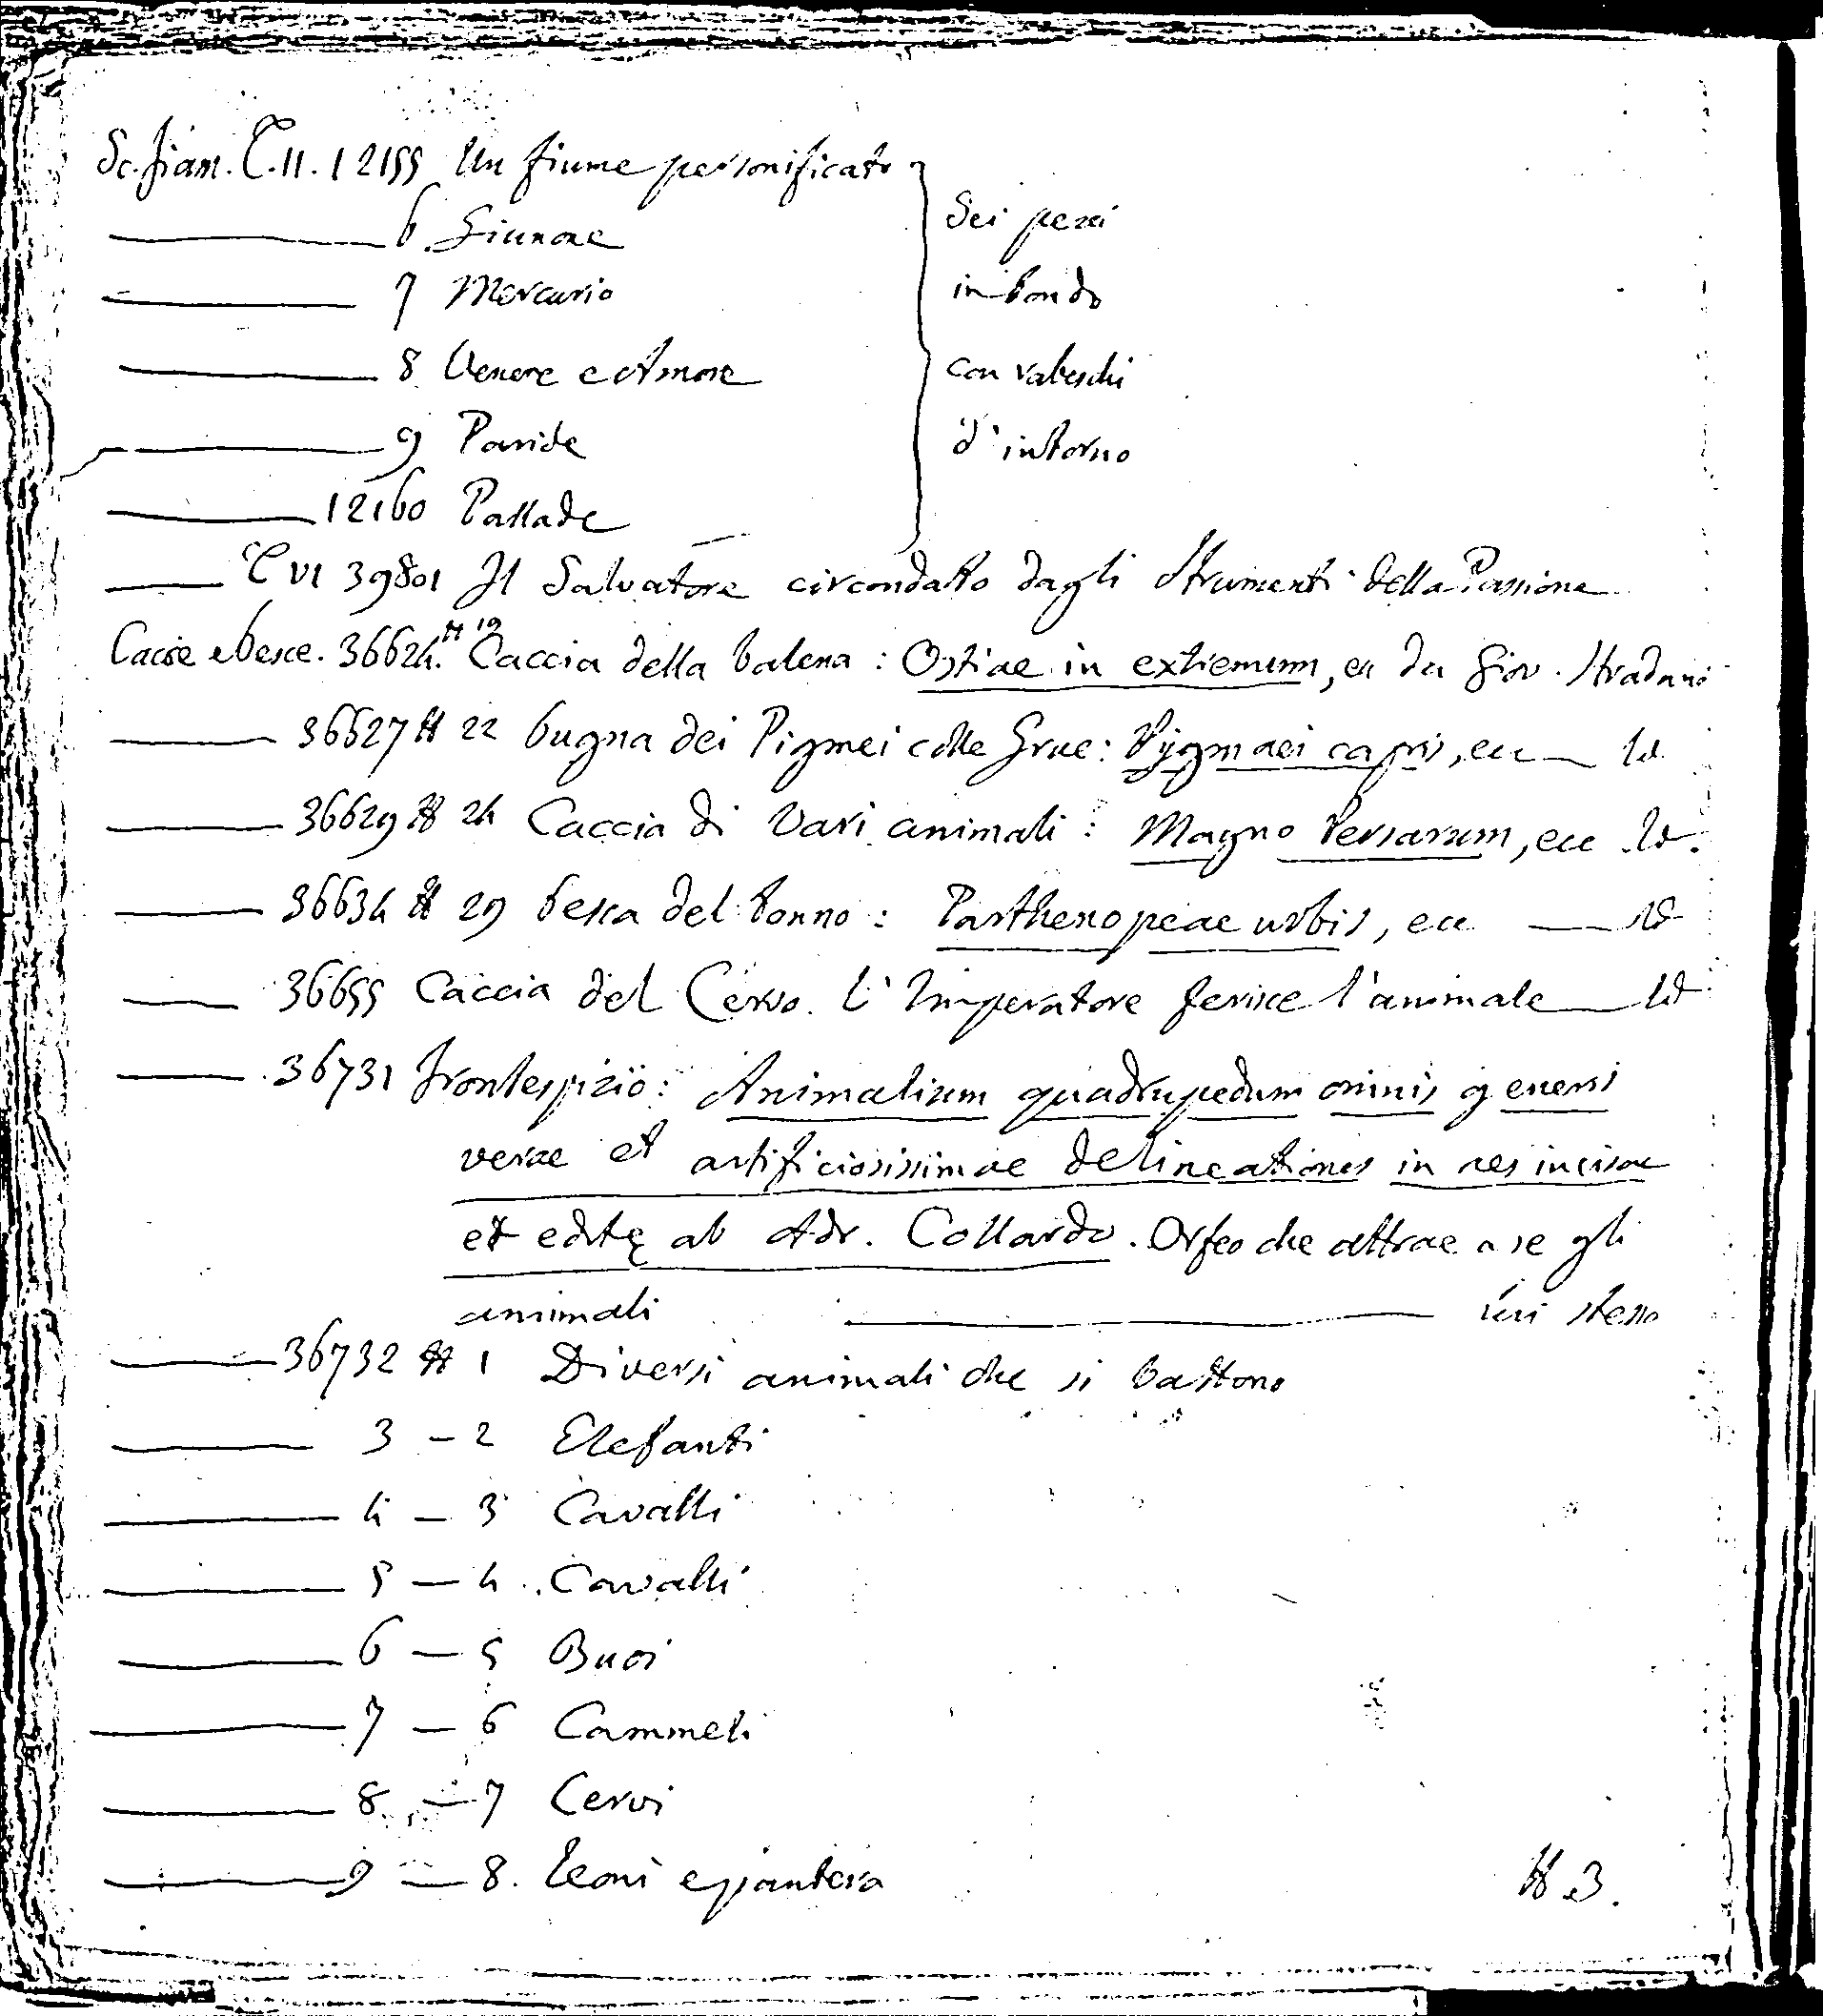 Sc. fiam. T. II. 12155 Un fiume personificato
6 Giunone
7 Mercurio
8 Venere e Amore
9 Paride
12160 Pallade
Sei pezzi
in tondo
con rabeschi
d'intorno
T VI 39801 Il Salvatore circondato dagli Strumenti della Passione
Cacce e Pesce. 36624. N 19 Caccia della balena: Ostiae in extremum, ecc da Giov. Stradano
36627 N 22 Pugna dei Pigmei colle Grue: Pygmaei capris, ecc — Id.
36629 N 24 Caccia di Vari animali: Magno Persarum, ecc Id.
36634 N 29 Pesca del tonno: Parthenopeae urbis, ecc — Id
36655 Caccia del Cervo. L'Imperatore ferisce l'animale — Id
36731 Frontespizio: Animalium quadrupedum omnis generis
verae et artificiosissimae delineationes in aes incisae
et editę ab Adr. Collardo. Orfeo che attrae a se gli
animali — stesso
36732 N 1 Diversi animali che si battono
3 – 2 Elefanti
4 – 3 Cavalli
5 – 4 Cavalli
6 – 5 Buoi
7 – 6 Cammeli
8 – 7 Cervi
9 – 8. Leoni e pantera
N 3.